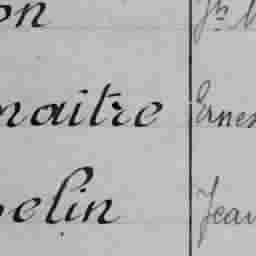 on
maitre Ernes
elin Jean